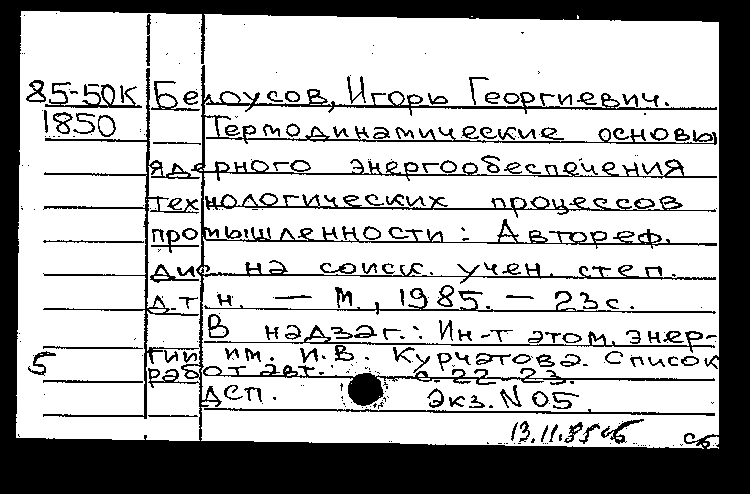 85-50К Белоусов, Игорь Георгиевич.
1850 Термодинамические основы
ядерного энергообеспечения
технологических процессов
промышленности: Автореф.
дис. на соиск. учен. степ.
д.т.н. — М., 1985. — 23с.
В надзаг.: Ин-т этом. энер-
5 гии им. И.В. Курчатова. Список
работ авт.: с.22-23.
ДСП. Экз. N 05.
13.11.85 сб сб